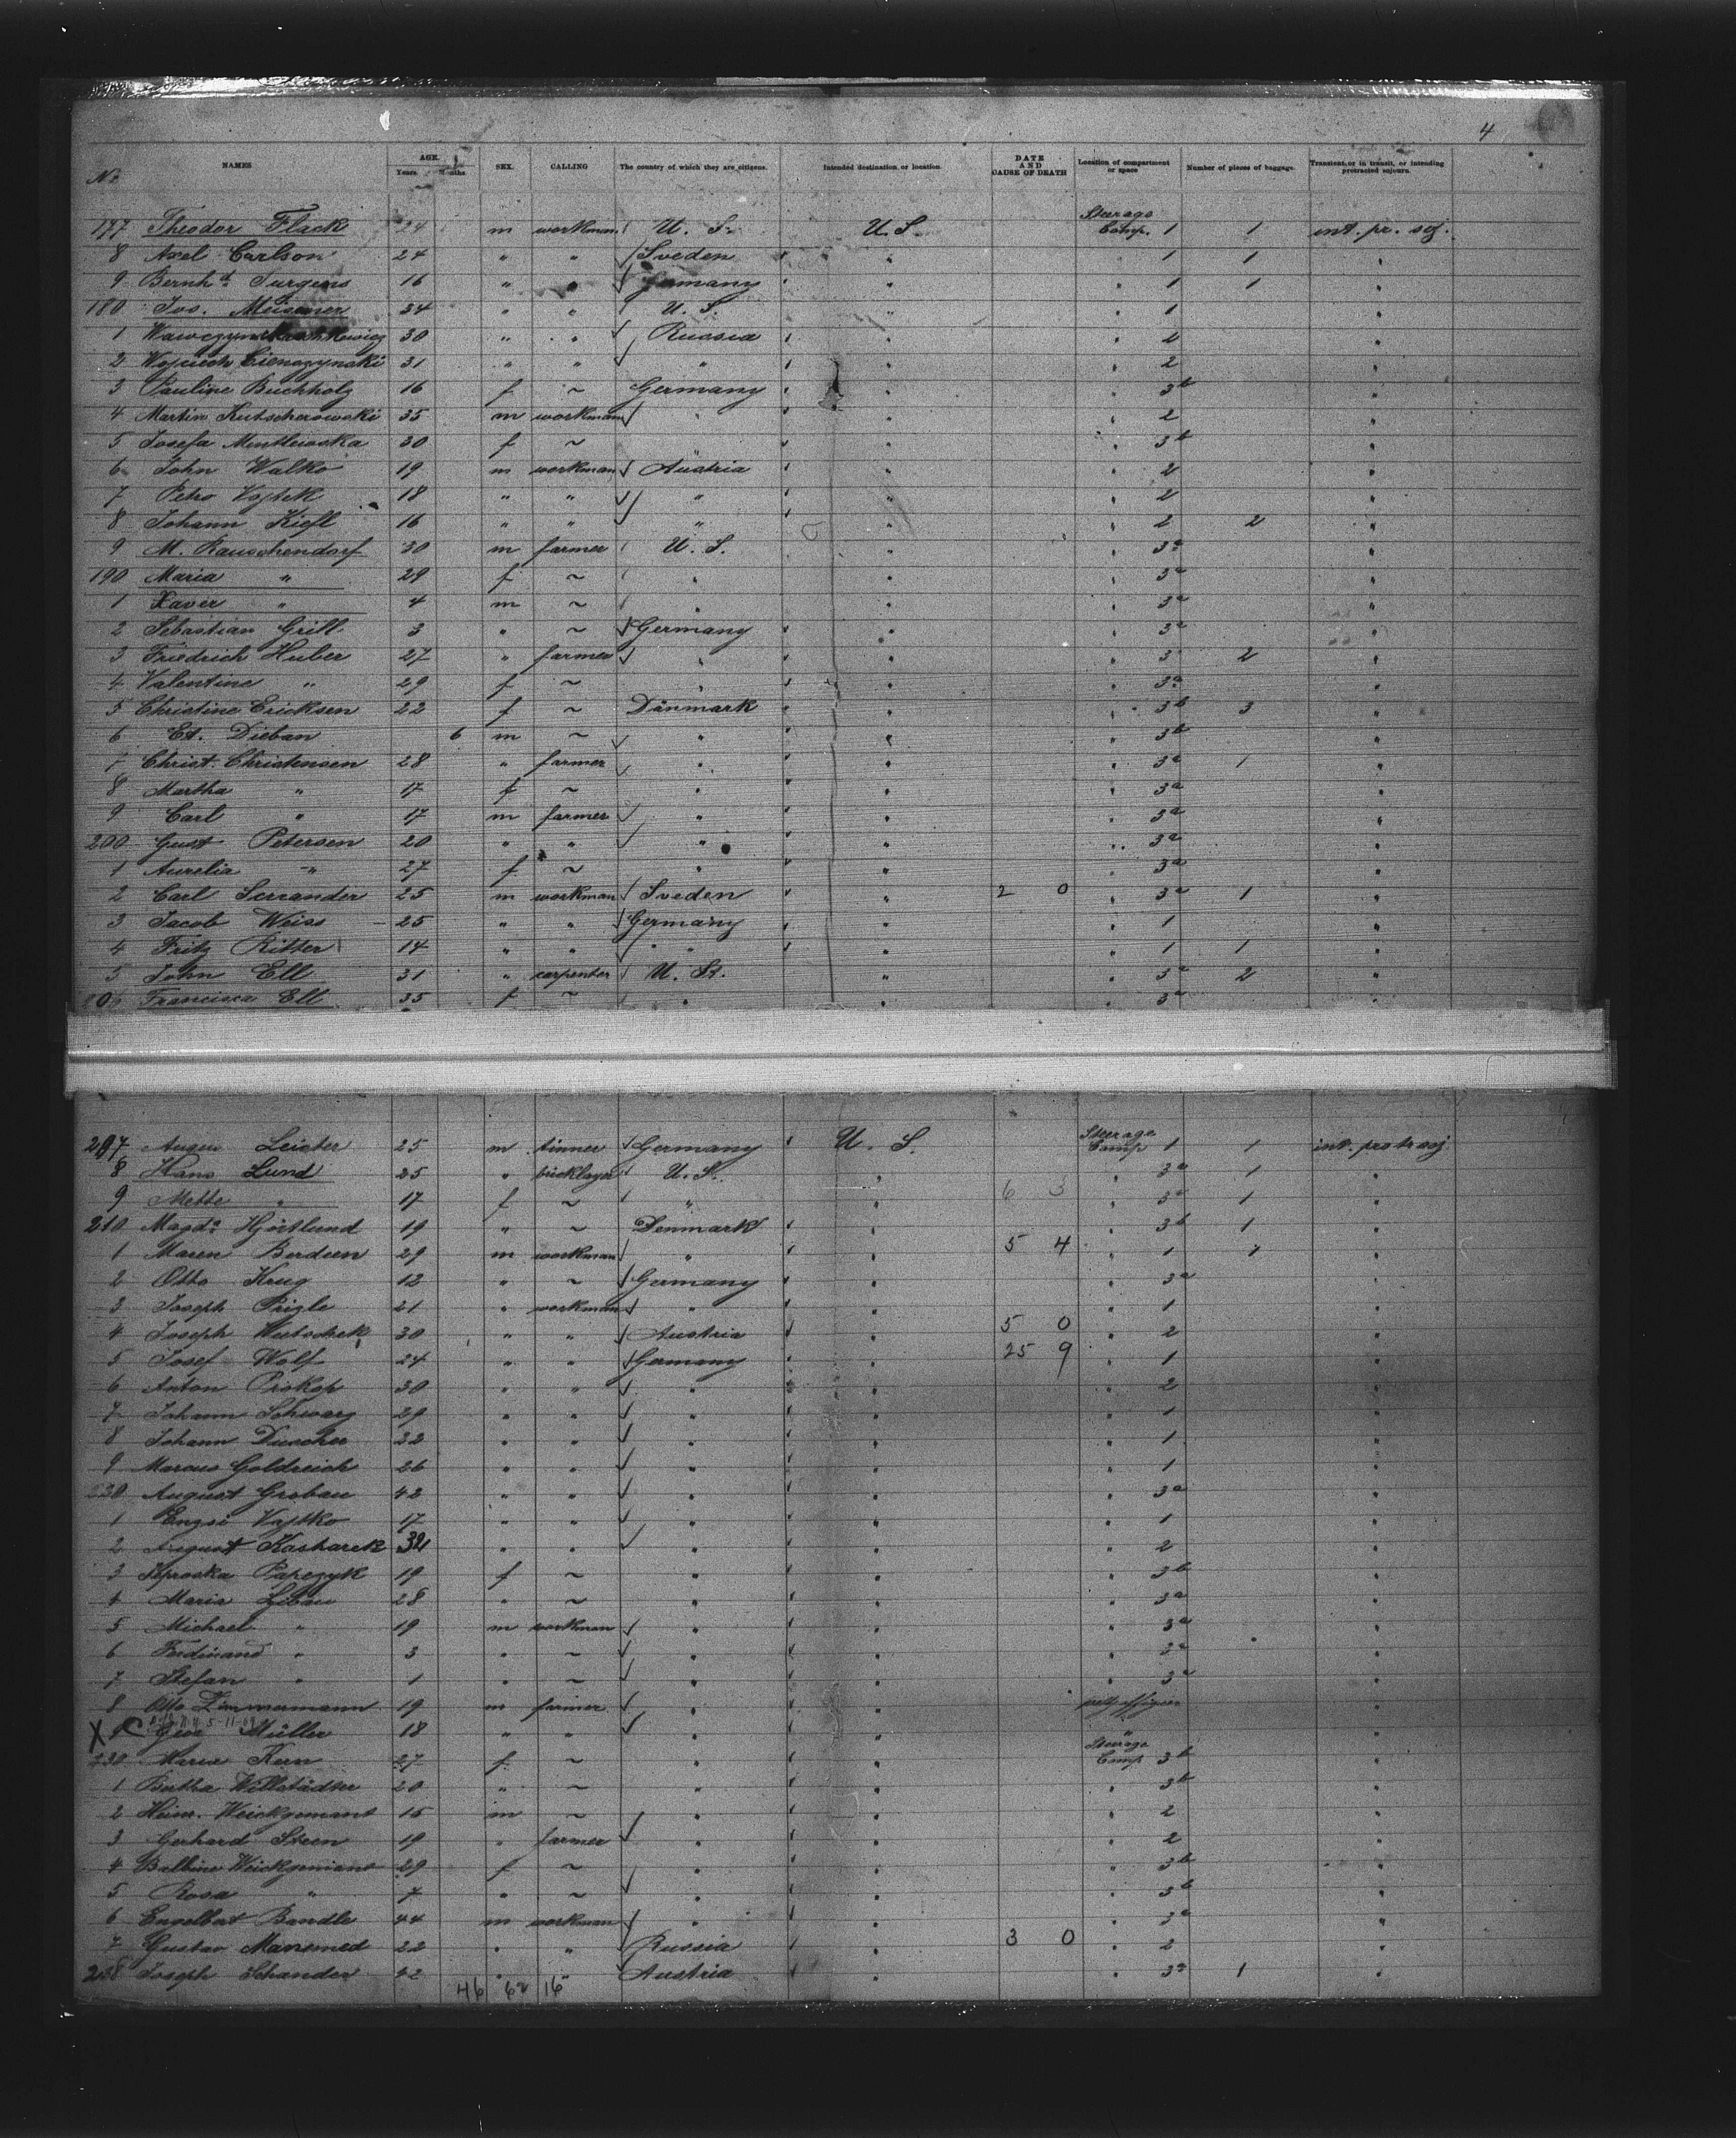 4
No NAMES AGE. Years. Months SEX. CALLING The country of which they are citizens. Intended destination or location. DATE AND CAUSE OF DEATH Location of compartment or space Number of pieces of baggage. Transient, or in transit, or intending protracted sojourn.
177 Theodor Flack 24 m workman U. S. U.S. Steerage Comp. 1 1 int. pr. soj.
8 Axel Carlson 24 " " Sveden " " 1 1 "
9 Bernhd Jurgens 16 " " Germany " " 1 1 "
180 Jos. Meissner 34 " " U. S. " " 1 "
1 30 " " Russia " " 2 "
2 Wojciech 31 " " " " " 2 "
3 Pauline Buchholz 16 f ~ Germany " " 3b "
4 Martin Kutscherowski 35 m workman " " " 2 "
5 Josefa Mentlewska 30 f ~ " " 3b "
6 John Walko 19 m workman Austria " " 2 "
7 Petro Vojtek 18 " " " " " 2 "
8 Johann Kiefl 16 " " " " " 2 2 "
9 M. Rauschendorf 30 m farmer U. S. " " 3a "
190 Maria " 29 f ~ " " " 3a "
1 Xaver " 4 m ~ " " " 3a "
2 Sebastian Grill 3 " ~ Germany " " 3a "
3 Friedrich Huber 27 " farmer " " " 3 2 "
4 Valentine " 29 f ~ " " " 3a "
5 Christine Ericksen 22 f ~ Dänmark " " 3b 3 "
6 Et. Dieban 6 m ~ " " " 3b "
7 Christ. Christensen 28 " farmer " " " 3a 1 "
8 Martha " 17 f ~ " " " 3a "
9 Carl " 17 m farmer " " " 3a "
200 Gust Petersen 20 " " " " " 3a "
1 Aurelia " 27 f ~ " " " 3a "
2 Carl Serrander 25 m workman Sveden " 2 0 " 3a 1 "
3 Jacob Weiss 25 " " Germany " " 1 "
4 Fritz Ritter 14 " " " " " 1 1 "
5 John Ell 31 " carpenter U. St. " " 3a 2 "
206 Francisca Ell 35 f ~ " " " 3a "
207 Leicter 25 m tinner Germany U. S. Steerage Comp 1 1 int. protr soj
8 Hans Lund 25 " bricklayer U. S. " " 3a 1 "
9 Mette " 17 f ~ " " 6 3 " 3a 1 "
210 Magda Hjörtlund 19 " ~ Denmark " " 3b 1 "
1 Maren Berdeen 29 m workman " " 5 4 " 1 1 "
2 Otto Krug 12 " ~ Germany " " 3a "
3 Joseph Prigle 21 " workman " " " 1 "
4 Joseph Wutschek 30 " " Austria " 5 0 " 2 "
5 Josef Wolf 24 " " Germany " 25 9 " 1 "
6 Anton Prokop 30 " " " " " 2 "
7 Johann Schwarz 29 " " " " " 1 "
8 Johann Duscher 22 " " " " " 1 "
9 Marcus Goldreich 26 " " " " " 1 "
220 August Grebau 42 " " " " " 3a "
1 Vajtko 17 " " " " " 1 "
2 August Kasharek 32 " " " " " 2 "
3 Paprzyk 19 f ~ " " " 3b "
4 Maria Libau 28 " ~ " " " 3a "
5 Michael " 19 m workman " " " 3a "
6 Ferdinand " 3 " ~ " " " 3a "
7 Stefan " 1 " ~ " " " 3a "
8 Otto Zimmermann 19 m farmer " " "
X 9 Geor Müller 18 " " " " " "
230 Maria Kern 27 f ~ " " Steerage Comp 3b "
1 Bertha Willstädter 20 " ~ " " " 3b "
2 Heinr. Weickgenant 15 m ~ " " " 2 "
3 Gerhard Steen 19 " farmer " " " 2 "
4 Balbine Weickgenant 29 f ~ " " " 3b "
5 Rosa " 7 " ~ " " " 3b "
6 Engelbert Bandle 44 m workman " " " 3a "
7 Gustav Mansmed 22 " " Russia " 3 0 " 2 "
238 Joseph Schander 42 " " Austria " " 3a 1 "
46 62 16